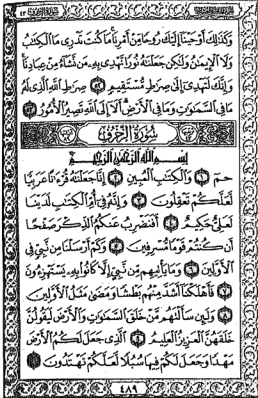 وَكَذَٰلِكَ أَوْحَيْنَا إِلَيْكَ رُوحًا مِنْ أَمْرِنَا مَا كُنْتَ تَدْرِي مَا الْكِتَابُ
وَلَا الْإِيمَانُ وَلَٰكِنْ جَعَلْنَاهُ نُورًا نَهْدِي بِهِ مَنْ نَشَاءُ مِنْ عِبَادِنَا
وَإِنَّكَ لَتَهْدِي إِلَىٰ صِرَاطٍ مُسْتَقِيمٍ ٥٢ صِرَاطِ اللَّهِ الَّذِي لَهُ
مَا فِي السَّمَاوَاتِ وَمَا فِي الْأَرْضِ أَلَا إِلَى اللَّهِ تَصِيرُ الْأُمُورُ ٥٣
سُورَةُ الزُّخْرُفِ
بِسْمِ اللَّهِ الرَّحْمَٰنِ الرَّحِيمِ
حم ١ وَالْكِتَابِ الْمُبِينِ ٢ إِنَّا جَعَلْنَاهُ قُرْءَانًا عَرَبِيًّا
لَعَلَّكُمْ تَعْقِلُونَ ٣ وَإِنَّهُ فِي أُمِّ الْكِتَابِ لَدَيْنَا
لَعَلِيٌّ حَكِيمٌ ٤ أَفَنَضْرِبُ عَنْكُمُ الذِّكْرَ صَفْحًا
أَنْ كُنْتُمْ قَوْمًا مُسْرِفِينَ ٥ وَكَمْ أَرْسَلْنَا مِنْ نَبِيٍّ فِي
الْأَوَّلِينَ ٦ وَمَا يَأْتِيهِمْ مِنْ نَبِيٍّ إِلَّا كَانُوا بِهِ يَسْتَهْزِءُونَ
٧ فَأَهْلَكْنَا أَشَدَّ مِنْهُمْ بَطْشًا وَمَضَىٰ مَثَلُ الْأَوَّلِينَ
٨ وَلَئِنْ سَأَلْتَهُمْ مَنْ خَلَقَ السَّمَاوَاتِ وَالْأَرْضَ لَيَقُولُنَّ
خَلَقَهُنَّ الْعَزِيزُ الْعَلِيمُ ٩ الَّذِي جَعَلَ لَكُمُ الْأَرْضَ
مَهْدًا وَجَعَلَ لَكُمْ فِيهَا سُبُلًا لَعَلَّكُمْ تَهْتَدُونَ ١٠
٤٨٩